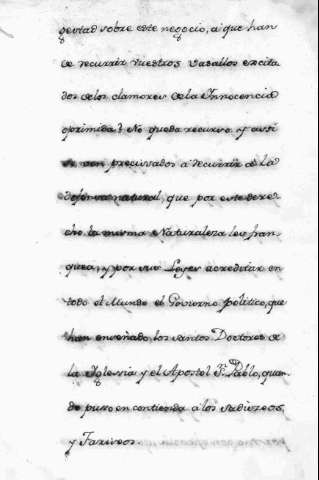 gestad sobre este negocio, a que han
de recurrir vuestros vasallos excita
dos de los clamores de la Innocencia
oprimida? No queda recurso y assi
se ven precissados a recurrir a la
defensa natural, que por este dere
cho la misma Naturaleza les fran
quea, y por sus Leyes acreditar en
todo el Mundo el Govierno politico, que
han enseñado los santos Doctores de
la Iglessia y el Apostol Sn. Pablo, quan
do puso en contienda a los Saduseos,
y Fariseos.